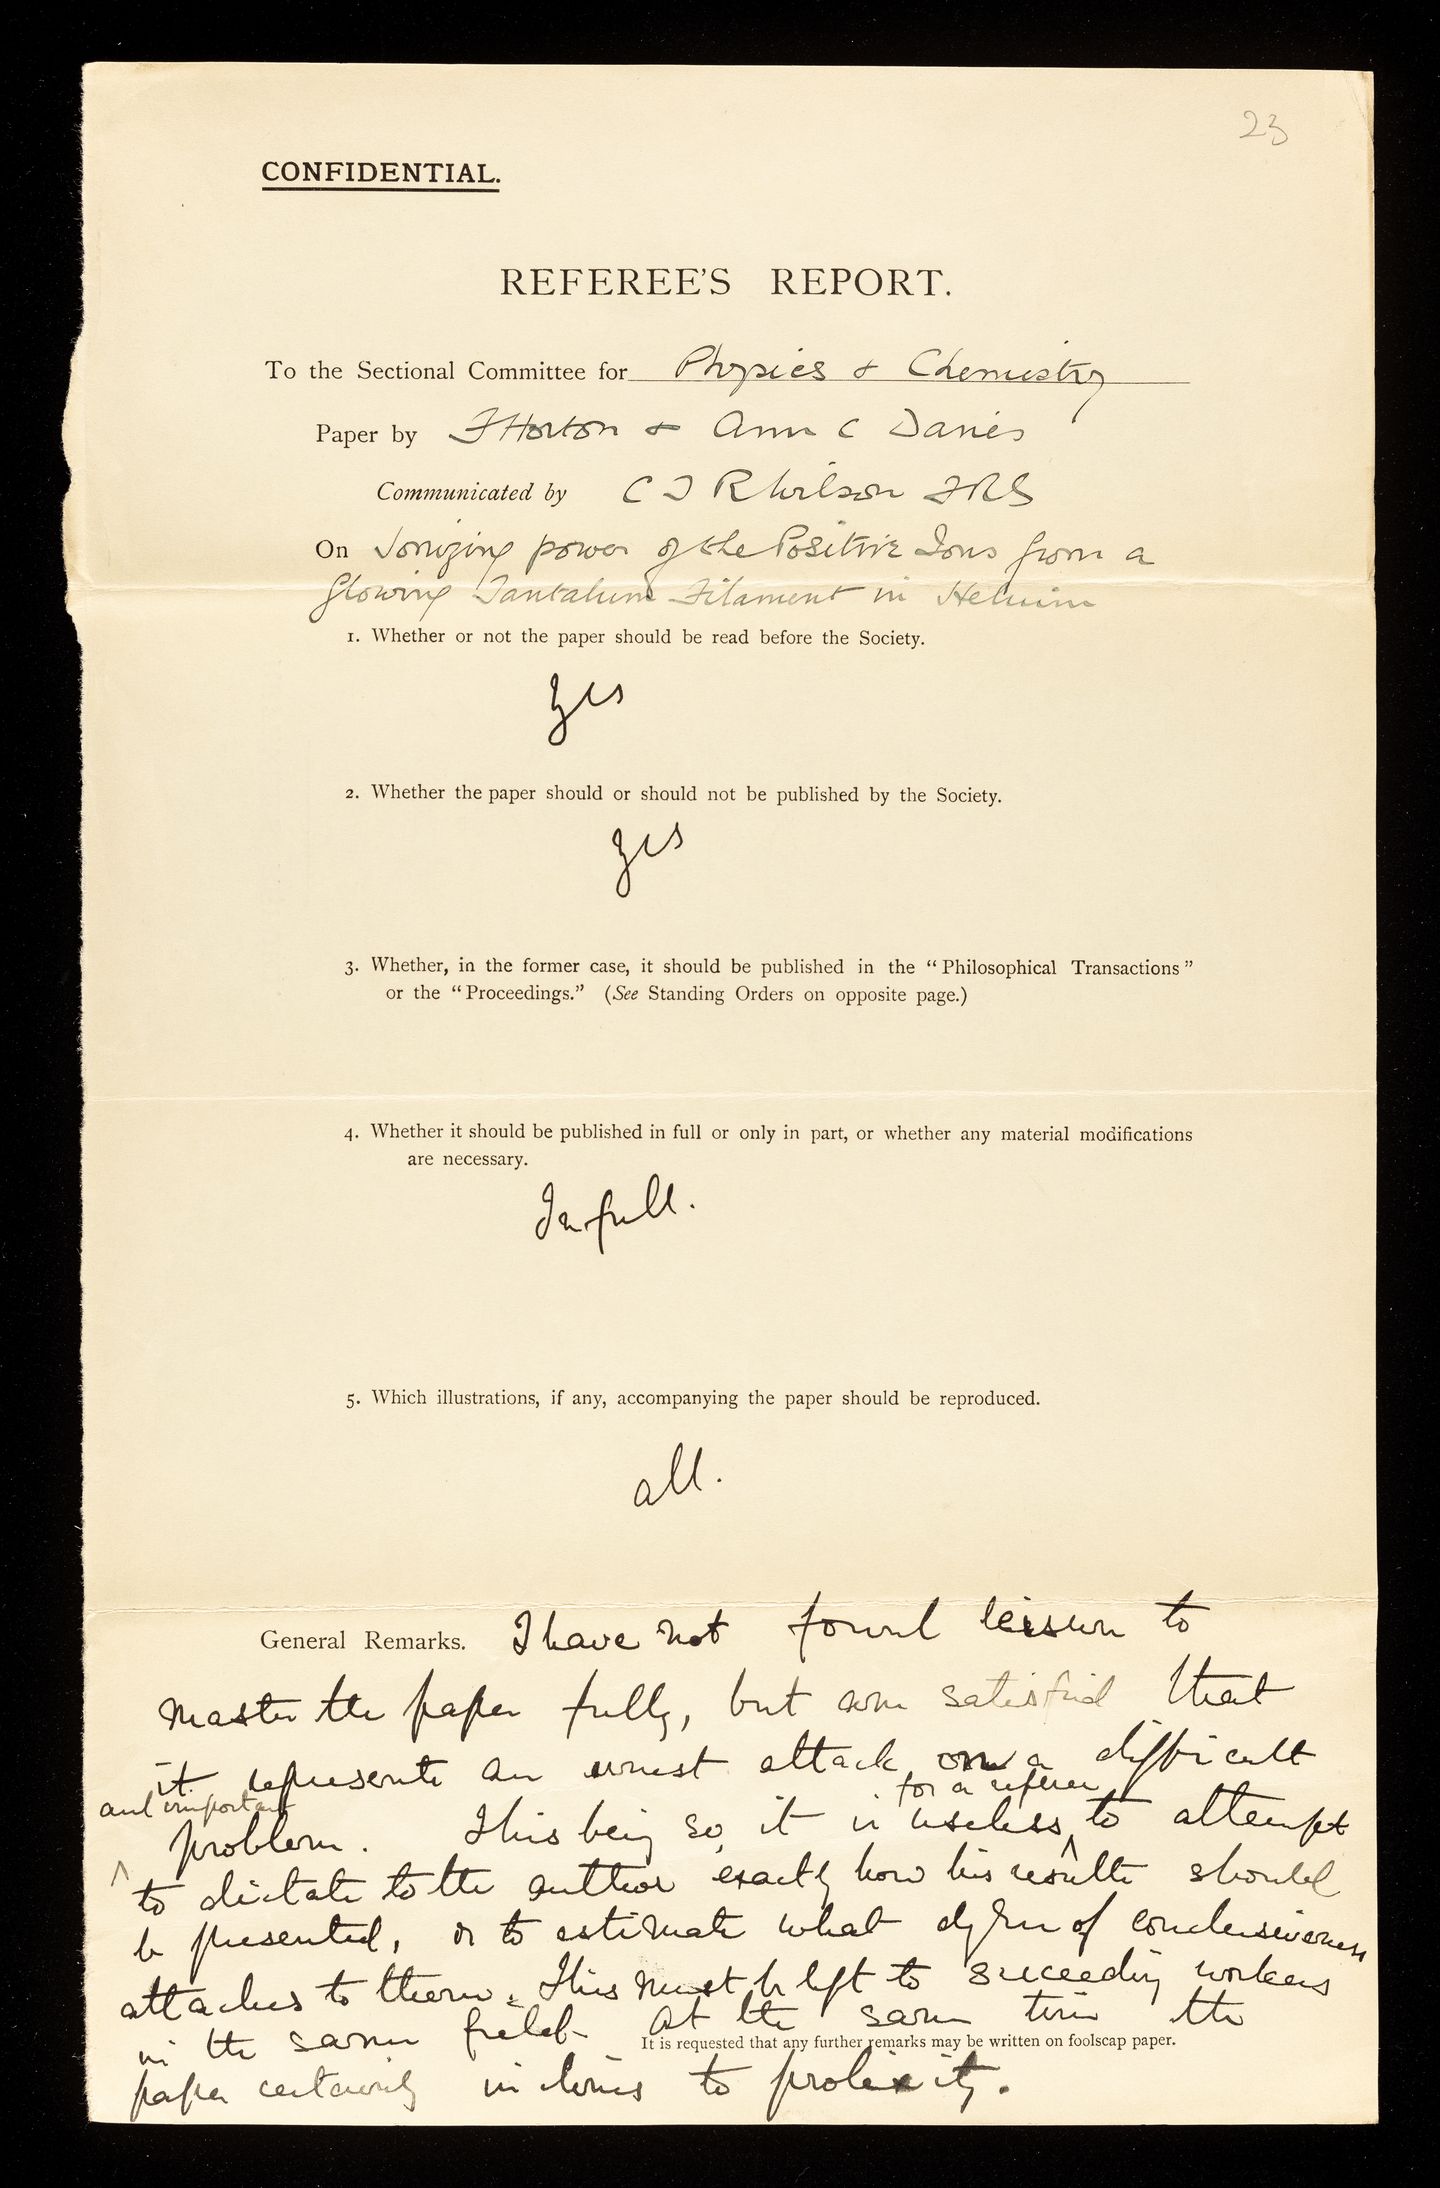 23
CONFIDENTIAL.
REFEREE'S REPORT.
To the Sectional Committee for Physics & Chemistry
Paper by F Horton & Ann C Davies
Communicated by C T R Wilson FRS
On Ionizing power of the Positive Ions from a
Glowing Tantalum Filament in Helium
1. Whether or not the paper should be read before the Society.
Yes
2. Whether the paper should or should not be published by the Society.
Yes
3. Whether, in the former case, it should be published in the “Philosophical Transactions”
or the “Proceedings.” (See Standing Orders on opposite page.)
4. Whether it should be published in full or only in part, or whether any material modifications
are necessary.
In full.
5. Which illustrations, if any, accompanying the paper should be reproduced.
all.
General Remarks. I have not found leisure to
master the paper fully, but am satisfied that
it represents an earnest attack on a difficult
and important for a referee
problem. This being so, it is useless to attempt
to dictate to the author exactly how his results should
be presented, or to estimate what degree of conclusiveness
attaches to them. This must be left to succeeding workers
in the same field. At the same time the
It is requested that any further remarks may be written on foolscap paper.
paper certainly inclines to prolixity.